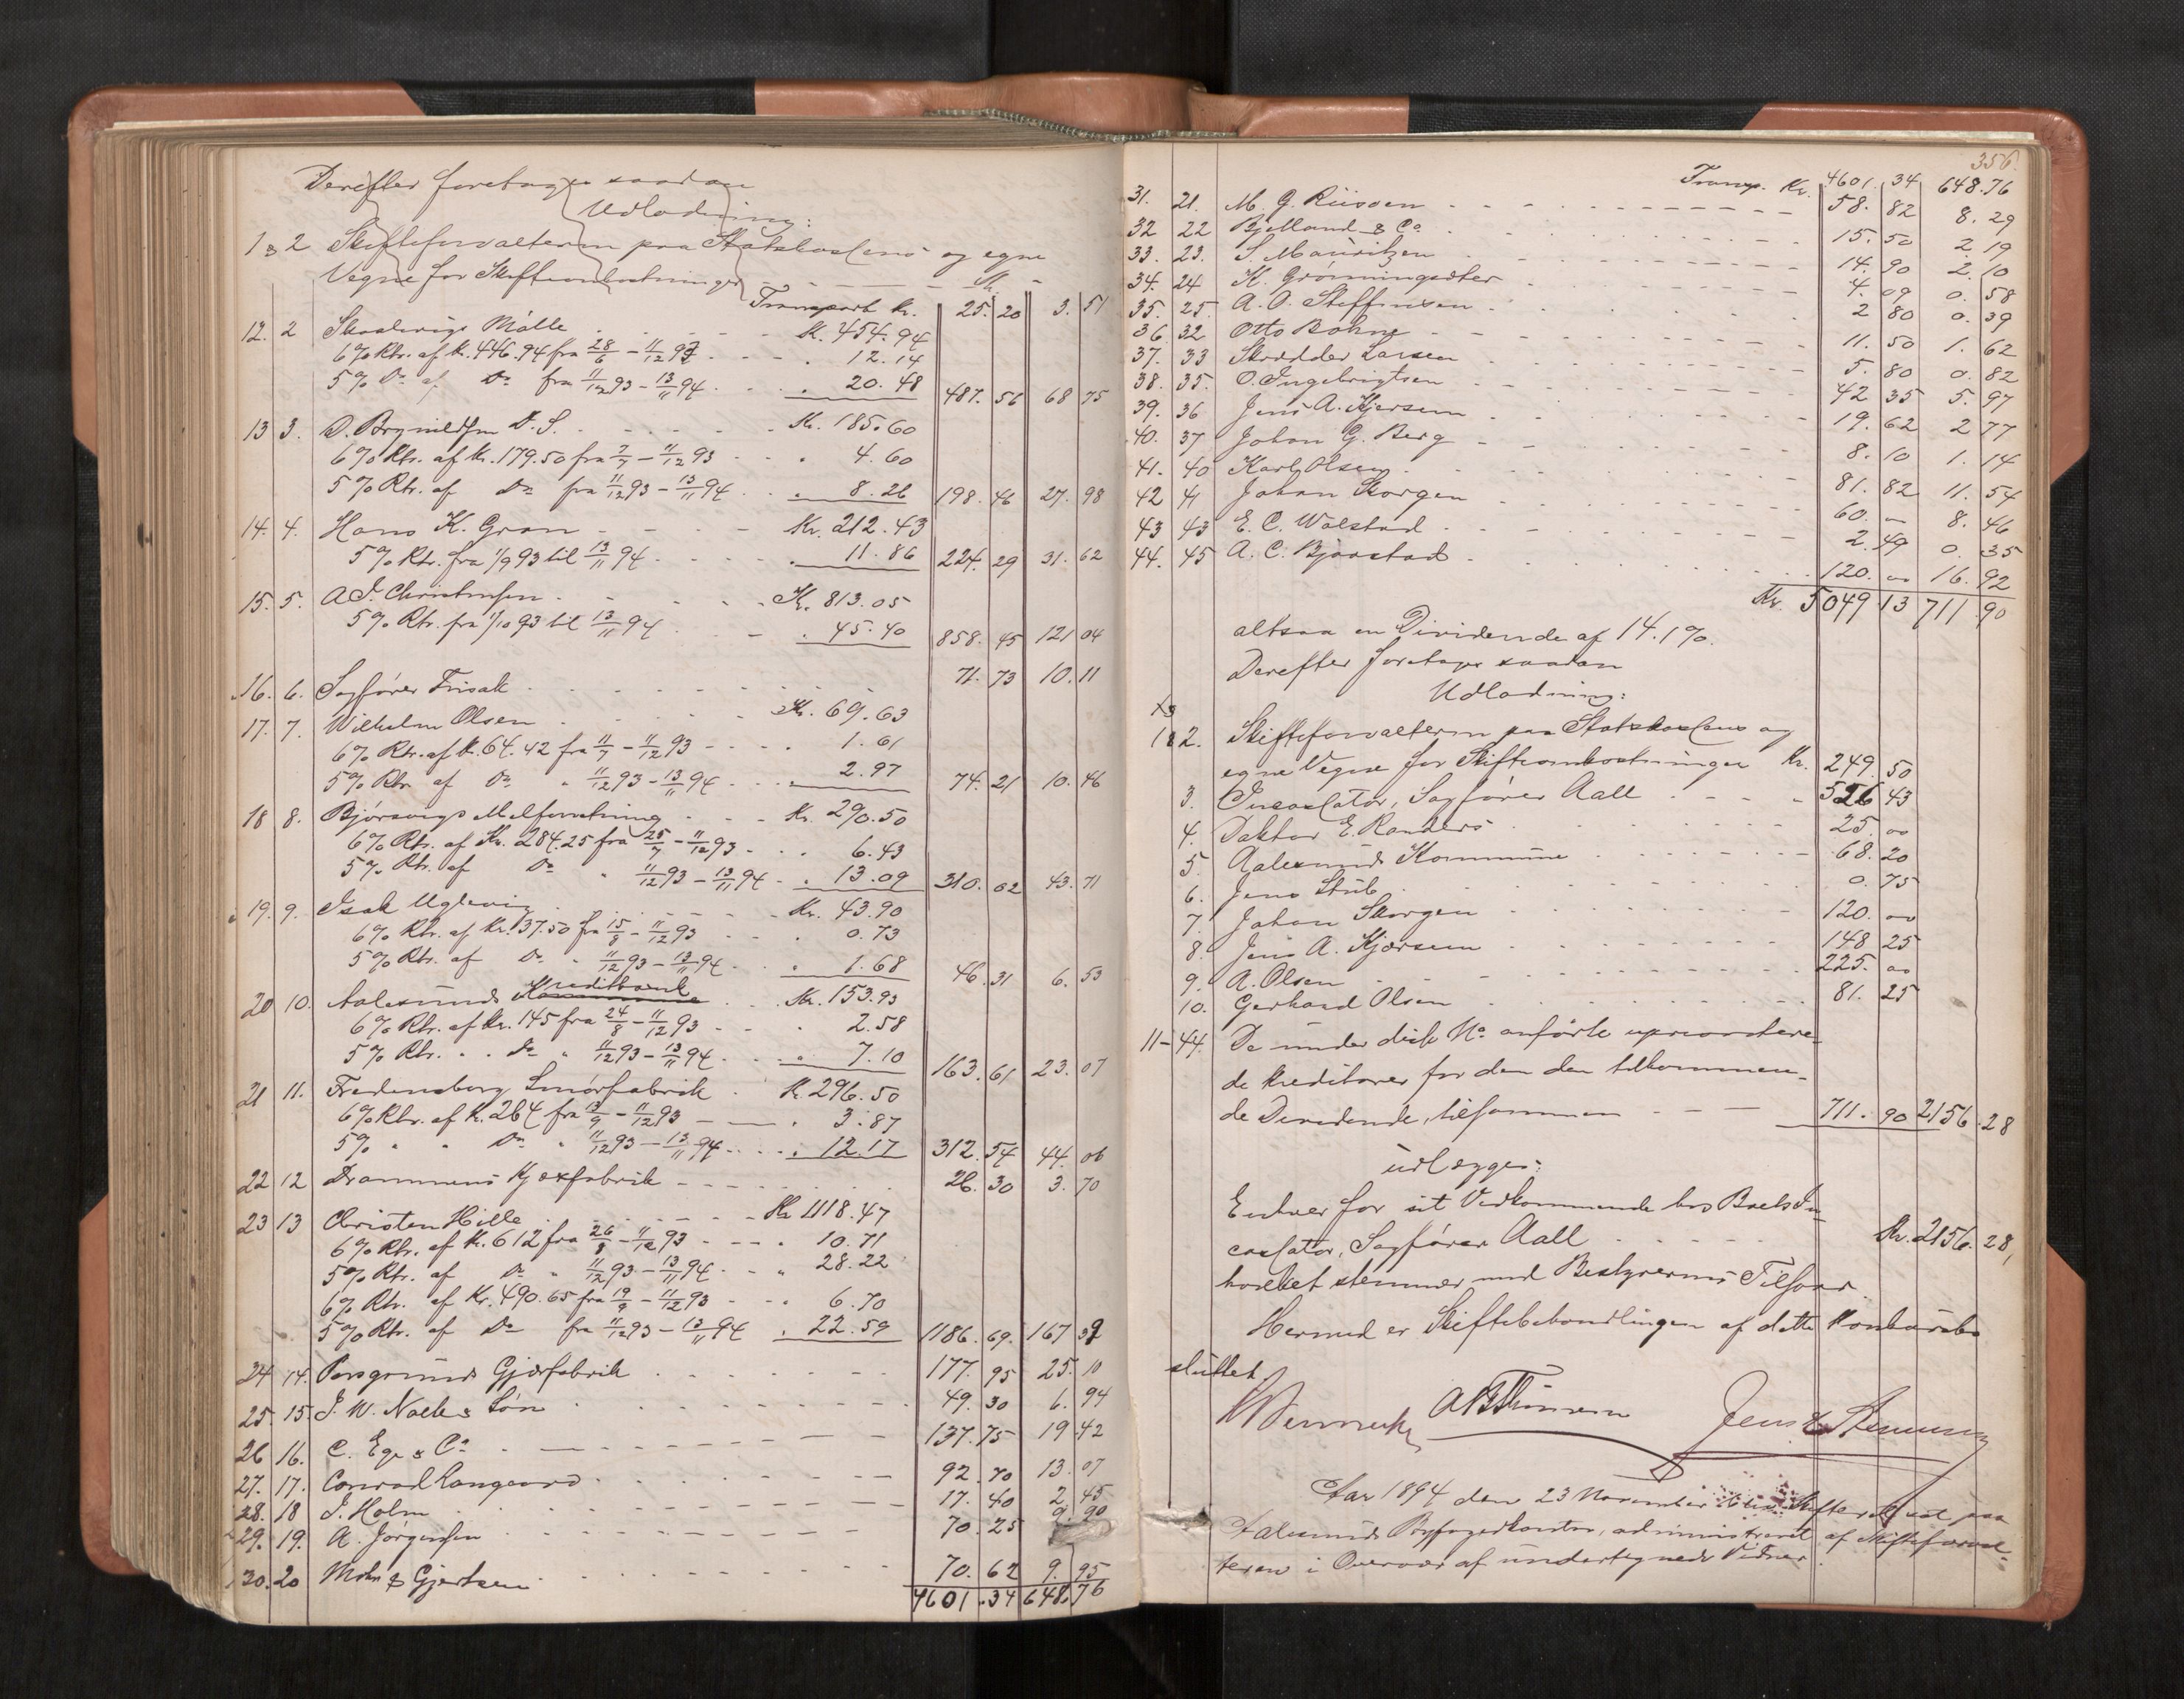 Derefter foretages saadan
Udlodning:
1 & 2 Skifteforvalteren paa Statskassens og egne
Vegne for Skifteomkostninger - - - Kr. -
Transport Kr. 25. 20 3. 51
12. 2 Skodvings Mølle . . . . Kr. 454. 94
6% Rtr. af Kr. 446.94 fra 28/6 - 11/12 93 . . . 12. 14
5% Do af Do fra 11/12 93 - 13/11 94 . . . 20. 48 487. 56 68 75
13 3. D. Brynildsen D. S. . . . . . Kr. 185.60
6% Rtr. af Kr. 179.50 fra 7/7 - 11/12 93 . . . 4. 60
5% Rtr. af Do fra 11/12 93 - 13/11 94 . . . 8. 26 198. 46 27. 98
14. 4. Hans K. Gran - - - - Kr. 212. 43
5% Rtr. fra 1/9 93 til 13/11 94 . . . . . 11. 86 224. 29 31. 62
15. 5. A. J. Christensen . . . . Kr. 813. 05
5% Rtr. fra 1/10 93 til 13/11 94 . . . 45. 40 858. 45 121 04
16. 6. Sagfører Frisak . . . . . . . . 71. 73 10. 11
17. 7. Wilhelm Olsen . . . . . Kr. 69. 63
6% Rtr. af Kr. 64. 42 fra 11/7 - 11/12 93 - - . . 1. 61
5% Rtr. af Do " 11/12 93 - 13/11 94 . . . 2. 97 74. 21 10. 46
18 8. Bjørsvigs Melforretning . . . Kr. 290. 50
6% Rtr. af Kr. 284.25 fra 25/7 - 11/12 93 - . . 6. 43
5% Rtr. af Do " 11/12 93 - 13/11 94 - . 13. 09 310. 02 43. 71
19. 9. Isak Uglevig . . . . . Kr. 43. 90
6% Rtr. af Kr. 37.50 fra 15/8 - 11/12 93 . . . 0. 73
5% Rtr. af Do " 11/12 93 - 13/11 94 . . . 1. 68 46. 31 6. 53
20 10. Aalesunds Kreditbank . . . Kr. 153. 93
6% Rtr. af Kr. 145 fra 24/8 - 11/12 93 - - . 2. 58
5% Rtr. . . Do " 11/12 93 - 13/11 94 . . . 7. 10 163. 61 23. 07
21 11. Fredensborg Smørfabrik . Kr. 296. 50
6% Rtr. af Kr. 264 fra 13/9 - 11/12 93 - - . 3. 87
5% " " Do " 11/12 93 - 13/11 94 . . . 12. 17 312. 54 44. 06
22 12 Drammens Kjexfabrik - - - . . . 26. 30 3. 70
23 13 Christen Hille . . . . . Kr 1118. 47
6% Rtr. af Kr. 612 fra 26/8 - 11/12 93 - - - . 10. 71
5% Rtr. af Do " 11/12 93 - 13/11 94 - - " 28. 22
6% Rtr. af Kr. 490.65 fra 19/9 - 11/12 93 - - . 6. 70
5% Rtr. af Do fra 11/12 93 - 13/11 94 . 22. 59 1186. 69. 167 32
24 14. Porsgrunds Gjærfabrik . . . . . 177. 95 25. 10
25. 15. J. W. Nacke & Søn . . . . . 49. 30 6. 94
26 16. C. Ege & Co . - - - - - 137. 75 19 42
27. 17. Conrad Langaard . . . . . 92. 70 13. 07
28. 18 J. Holm . . . . . . . 17. 40 2. 45
29. 19. A. Jørgensen . . . . . . 70. 25 9. 90
30. 20 Mohn & Gjertsen . . . . . 70. 62 9. 95
4601. 34 648. 76
356.
Transp. Kr. 4601. 34 648. 76
31. 21. M. G. Riisøen - - - - - 58. 82 8. 29
32 22 Bjelland & Co . . . . . 15. 50 2. 19
33. 23. S. Mauritzen . . . . . 14. 90 2. 10
34. 24 K. Grønningsæter . . . . . 4. 09 0. 58
35. 25. A. O. Steffensen . . . . . 2 80 0. 39
36. 32 Otto Bohne - - - - - 11. 50 1. 62
37. 33 Skrædder Larsen . . . . . 5. 80 0. 82
38. 35. O. Ingebrigtsen . . . . . 42 35 5. 97
39. 36 Jens A. Kjersem . . . . . 19. 62 2 77
40. 37 Johan G. Berg - - - - - 8. 10 1. 14
41. 40 Karl Olsen . . . . . 81. 82 11. 54
42 41 Johan Skorgen . . . . . 60. - 8. 46
43 43 E. C. Walstad . . . . . 2. 49 0. 35
44. 45 A. C. Bjørstad . . . . . 120. 00 16. 92
Kr. 5049 13 711. 90
altsaa en Dividende af 14.1%.
Derefter foretages saadan
Udlodning:
1 & 2. Skifteforvalteren paa Statskassens og
egne Vegne for Skifteomkostninger Kr. 249. 50
3. Incassator, Sagfører Aall . - - - 526 43
4. Doktor E. Randers . . . . . 25. 00
5. Aalesunds Kommune . . . . . 68. 20
6. Jens Stub . . . . . 0. 75
7. Johan Skorgen . . . . . 120. 00
8. Jens A. Kjersem . . . . . 148 25
9. A. Olsen . . . . . 225. 00
10. Gerhard Olsen . . . . . 81. 25
11-44. De under disse No anførte upriortere-
de Kreditorer for den dem tilkommen-
de Dividende, tilsammen - - - 711. 90 2156. 28
udlægges:
Enhver for sit Vedkommende hos Boets In-
cassator, Sagfører Aall . . . . . Kr. 2156. 28,
hvilket stemmer med Bestyrerens Tilsvar.
Hermed er Skiftebehandlingen af dette Konkursbo
sluttet.
Aar 1894 den 23 November blev Skifteret sat paa
Aalesunds Byfogedkontor, administreret af Skifteforval-
teren i Overvær af undertegnede Vidner.